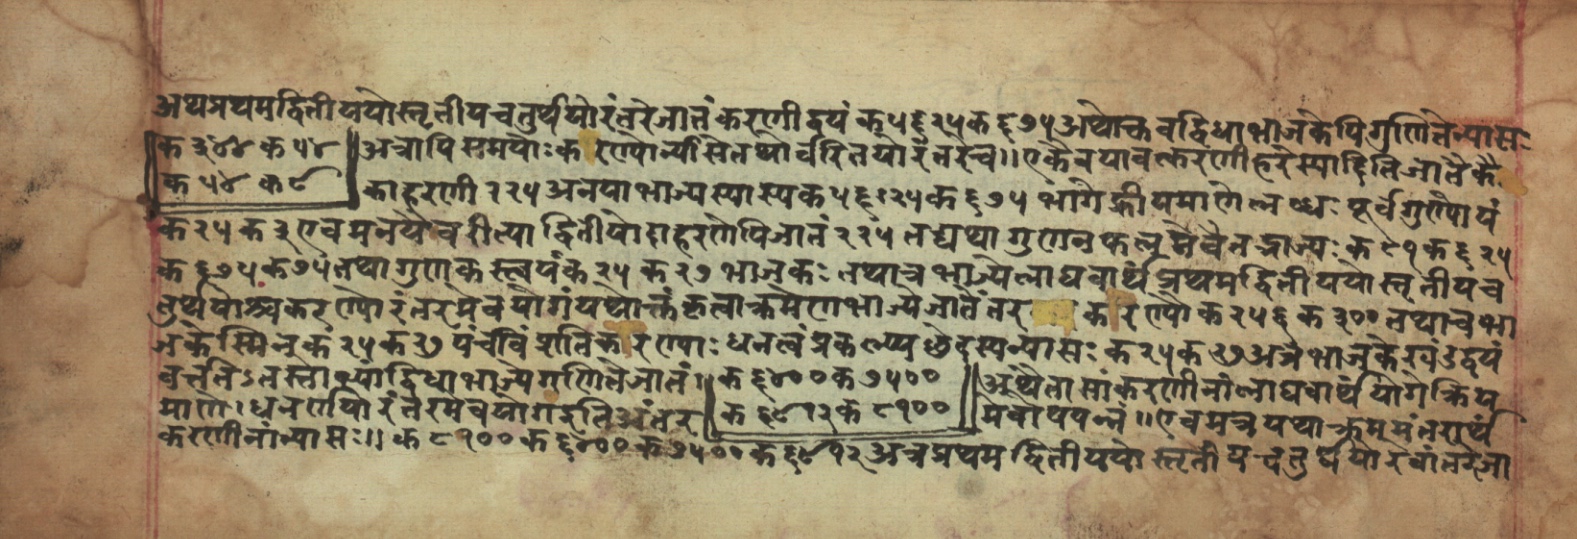 अथप्रथमद्वितीययोस्तृतीयचतुर्थयोरंतरेजातंकरणीद्वयं क ५६२५ क ६७५ अथोक्तवद्विधाभाजकेपिगुणितेन्यासः
क ३४४ क ५४ अत्रापिसमयोः करण्योर्न्यासेतथोर्वरितयोरंतरेच ॥ एकैवयावत्करणीहरेस्यादितिजातैकै
क ५४ क ९ काहरणी २२५ अनयाभाज्यस्यास्यक ५६२५ क ६७५ भागेह्रीयमाणेलब्धः पूर्वगुण्योयं
क २५ क ३ एवमनयैवरीत्याद्वितीयोदाहरणेपिजातं २२५ तद्यथागुणनफलमेवैतद्भाज्यः क ८१ क ६२५
क ६७५ क ७५ तथागुणकस्त्वयंक २५ क २७ भाजकः तथात्रभाज्येलाघवार्थंप्रथमद्वितीययोस्तृतीयच
तुर्थयोश्चकरण्योरंतरमेवयोगंयथोक्तंकृत्वाक्रमेणभाज्येजातेतर करण्यौ क २५६ क ३०० तथाचभा
जकेस्मिन् क २५ क २७ पंचविंशतिकरण्याः धनत्वंप्रकल्प्यछेदस्यन्यासः क २५ क २७ अत्रभाजकेखंडद्वयं
वर्त्ततेऽतस्ताभ्यांद्विधाभाज्यगणितेजातं क ६४०० क ७५०० अथैतासांकरणीनांलाघवार्थंयोगेक्रिय
माणे। धनर्णयोरंतरमेवयोगइतिअंतर क ६९१२ क ८१०० मेवोपपन्नं ॥ एवमत्रयथाक्रममंतरार्थं
करणीनांन्यासः ॥ क ८१०० क ६४०० क ७५०० क ६९१२ अत्रप्रथमद्वितीययोस्तृतीयचतुर्थयोरेवांतरेजा